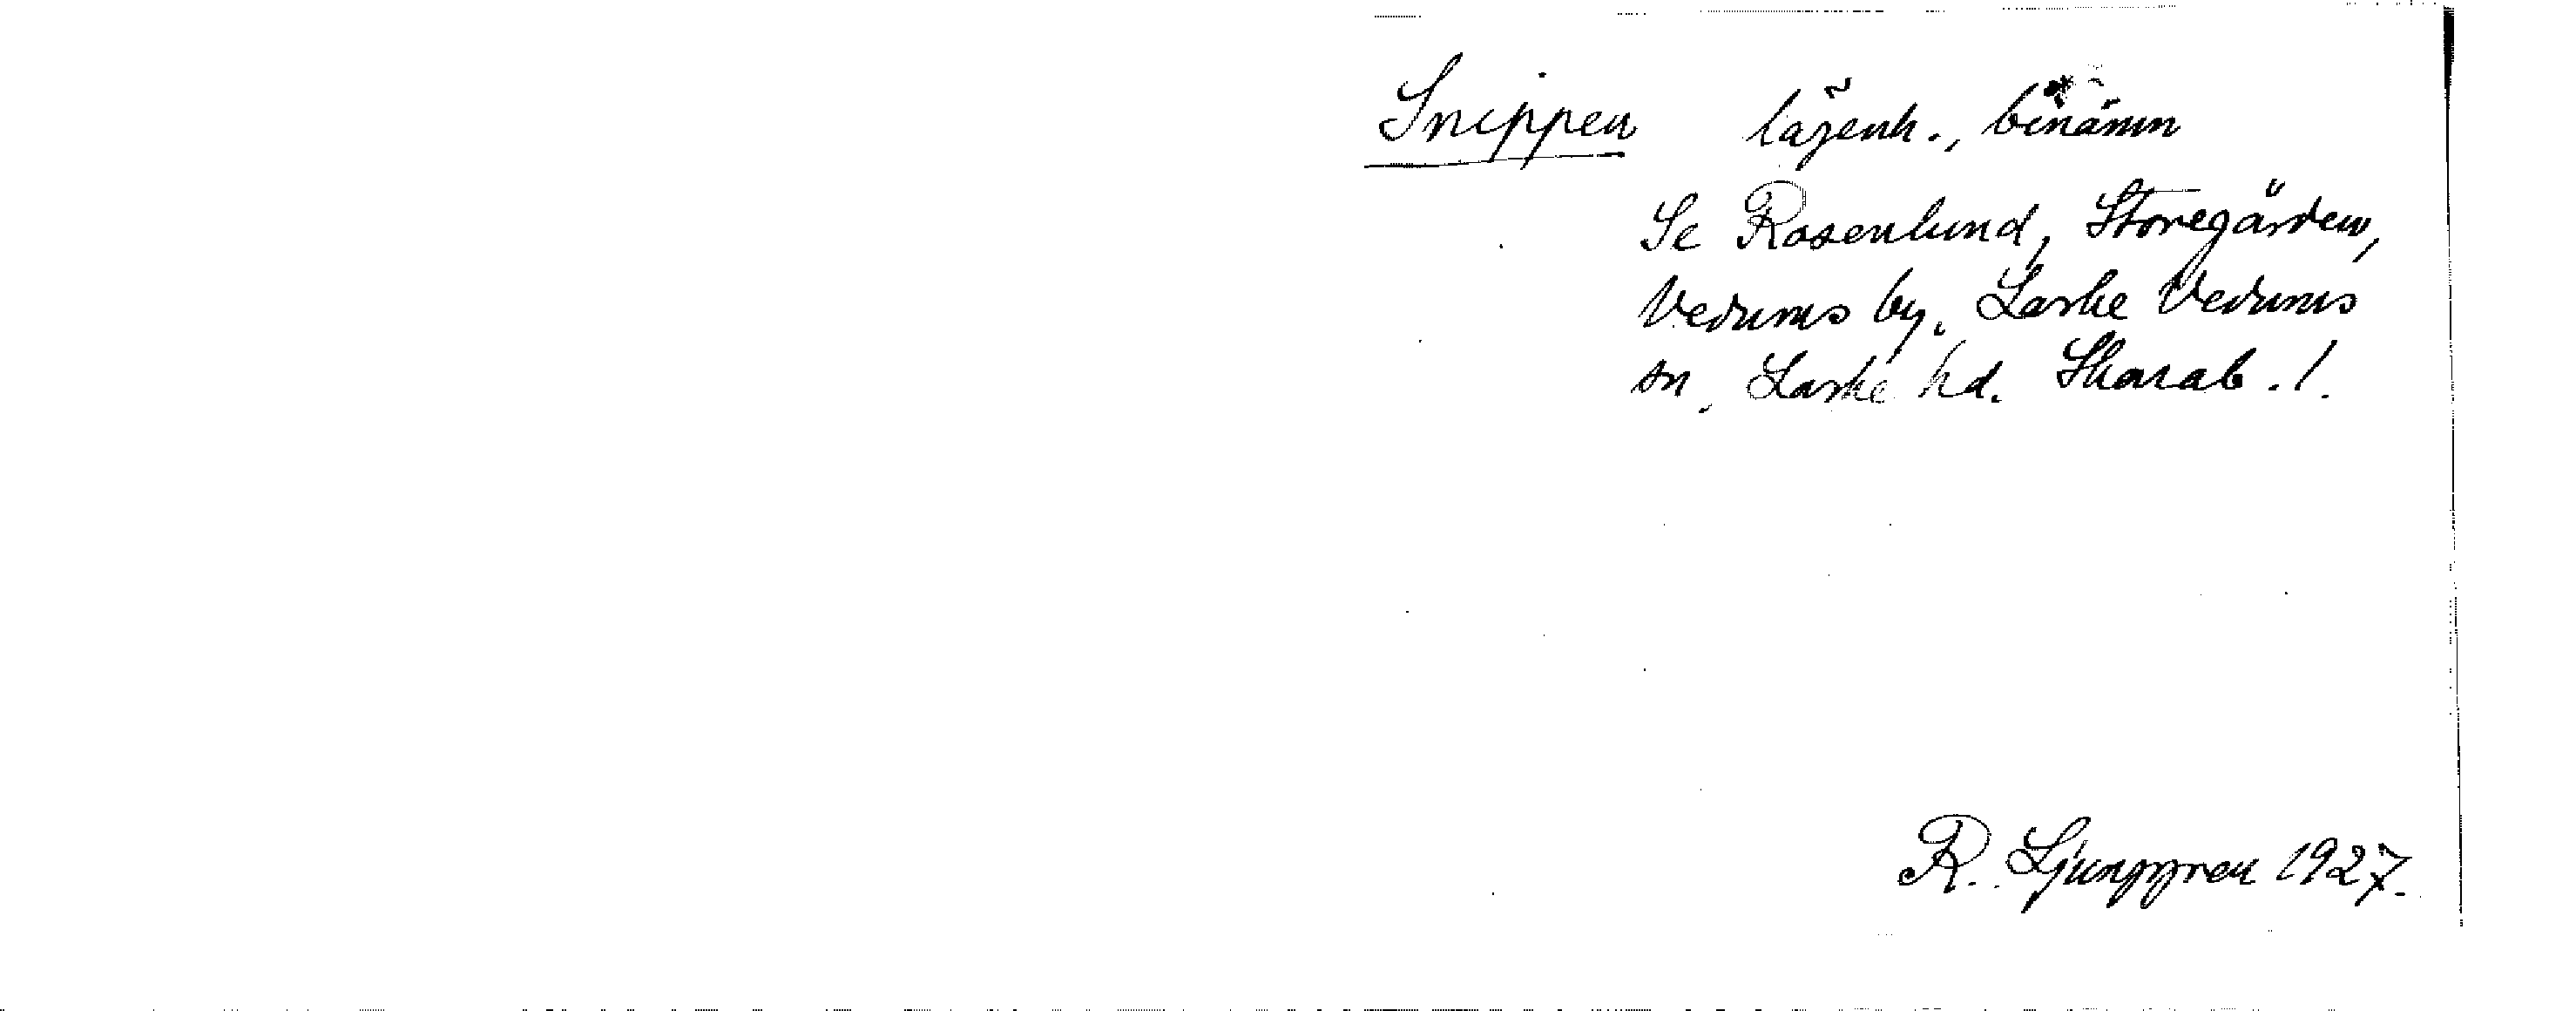 Snippen lägenh., binämn
Se Rosenlund, Storegården,
Vedums by, Larke Vedums
sn, Laske hd. Skarab. l.
R. Ljunggren 1927.